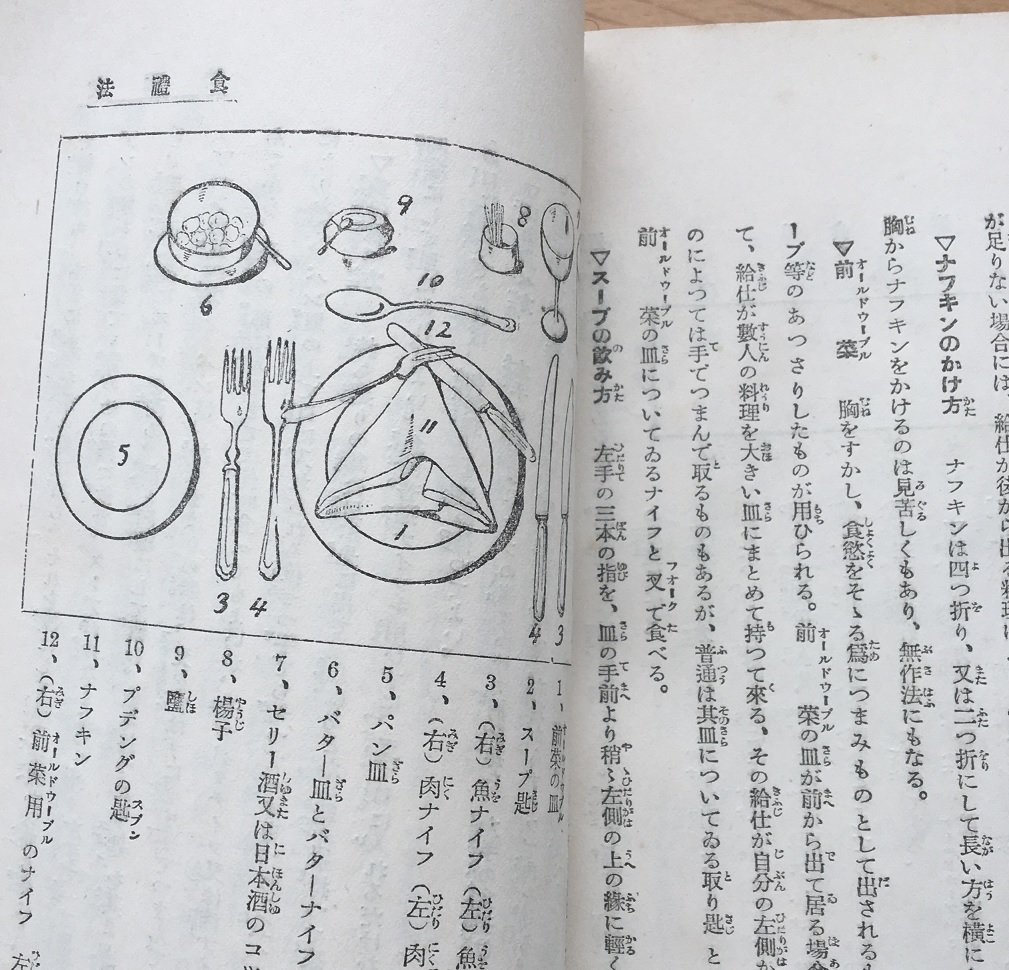 が足りない場合には、給仕が後から出る料理に
▽ナフキンのかけ方 ナフキンは四つ折り、又は二つ折にして長い方を横に
胸からナフキンをかけるのは見苦しくもあり、無作法にもなる。
▽前菜 胸をすかし、食慾をそゝる爲につまみものとして出されるも
ープ等のあつさりしたものが用ひられる。前菜の皿が前から出て居る場合
て、給仕が數人の料理を大きい皿にまとめて持つて來る、その給仕が自分の左側か
のによつては手でつまんで取るものもあるが、普通は其皿についてゐる取り匙と
前菜の皿についてゐるナイフと叉で食べる。
▽スープの飲み方 左手の三本の指を、皿の手前より稍〻左側の上の緣に輕く
食禮法
9
8
6
10
12
5
11
1
3
4
4
3
1、前菜の皿
2、スープ匙
3、（右）魚ナイフ（左）魚
4、（右）肉ナイフ（左）肉
5、パン皿
6、バター皿とバターナイフ
7、セリー酒又は日本酒のコ
8、楊子
9、鹽
10、プデングの匙
11、ナフキン
12、（右）前菜用のナイフ 左